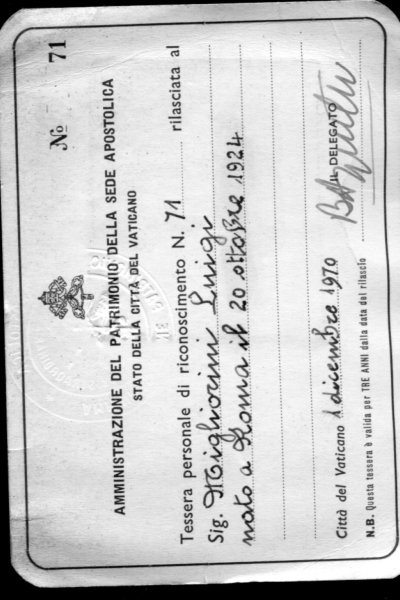 Nº 71
AMMINISTRAZIONE DEL PATRIMONIO DELLA SEDE APOSTOLICA
STATO DELLA CITTÀ DEL VATICANO
Tessera personale di riconoscimento N. 71 rilasciata al
Sig. Migliorini Luigi
nato a Roma il 20 ottobre 1924
Città del Vaticano 1 dicembre 1970
IL DELEGATO
N.B. Questa tessera è valida per TRE ANNI dalla data del rilascio